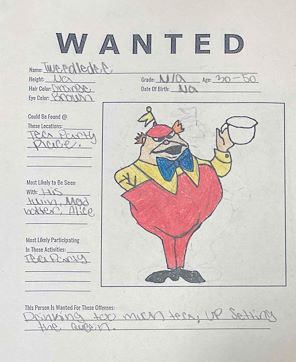 WANTED
Name: Tweedledee
Height: NA Grade: N/A Age: 30-50
Hair Color: Orange Date Of Birth: NA
Eye Color: Brown
Could Be Found @
These Locations:
Tea Party
Most Likely to Be Seen
With: His
twin, Mad
Hatter, Alice
Most Likely Participating
In These Activities:
Tea Party
This Person Is Wanted For These Offenses:
Drinking too much tea, UP Setting
the queen.